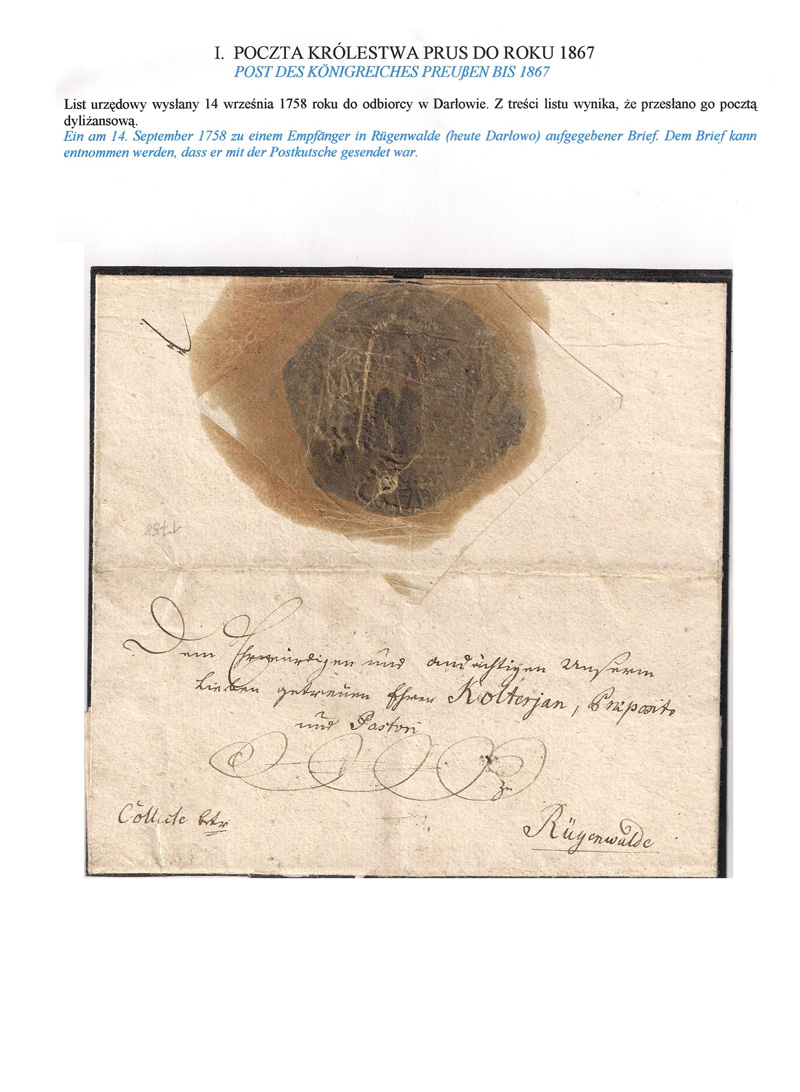 I. POCZTA KRÓLESTWA PRUS DO ROKU 1867
POST DES KÖNIGREICHES PREUßEN BIS 1867
List urzędowy wysłany 14 września 1758 roku do odbiorcy w Darłowie. Z treści listu wynika, że przesłano go pocztą
dyliżansową.
Ein am 14. September 1758 zu einem Empfänger in Rügenwalde (heute Darlowo) aufgegebener Brief. Dem Brief kann
entnommen werden, dass er mit der Postkutsche gesendet war.
1758
Dem Ehrwürdigen und andächtigen Unserm
Lieben getreuen Ehren Kolterjan, Præposito
und Pastori
zu
Collecte betr
Rügenwalde